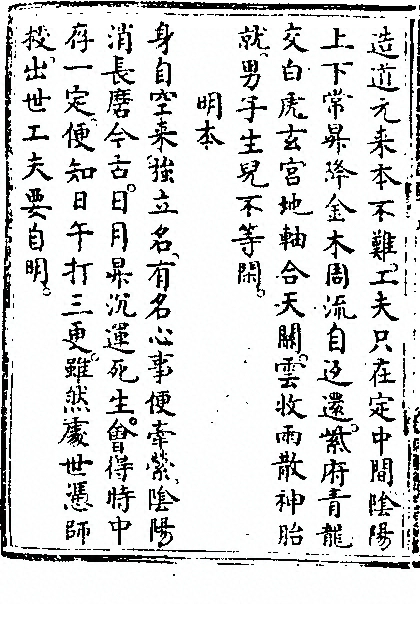 造道元来本不難。工夫只在定中間陰陽
上下常昇降金木周流自返還。紫府青龍
交白虎玄宮地軸合天關。雲收雨散神胎
就。男子生兒不等閑。
明本
身自空来強立名。有名心事便牽縈。陰陽
消長磨今古。日月昇沉運死生。會得時中
存一定。便知日午打三更。雖然處世憑師
授。出世工夫要自明。